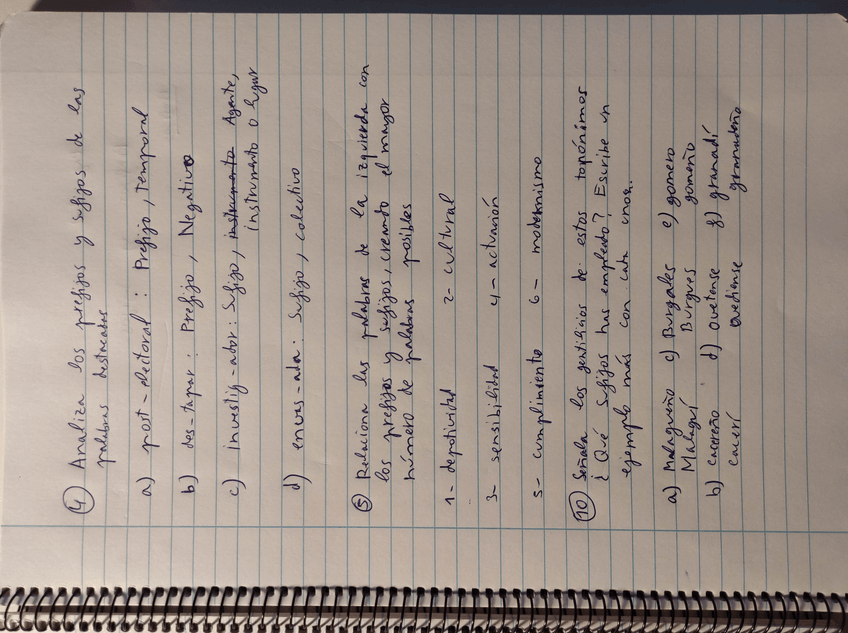 ④ Analiza los prefijos y sufijos de las
palabras destacadas
a) post-electoral : Prefijo, Temporal
b) des-tapar : Prefijo, Negativo
c) investig-ador: Sufijo, instrumento Agente,
instrumento o lugar
d) envas-ada: Sufijo, colectivo
⑤ Relaciona las palabras de la izquierda con
los prefijos y sufijos, creando el mayor
número de palabras posibles
1- depotividad 2- cultural
3- sensibilidad 4- activación
5- cumplimiento 6- modernismo
⑩ Señala los gentilicios de estos topónimos
¿Qué sufijos has empleado? Escribe un
ejemplo más con cada uno.
a) Malagueño c) Burgales e) gomero
Malaguí Burgues gomeño
b) cacereño d) Ovetense f) granadí
cacerí Ovediense granadeño